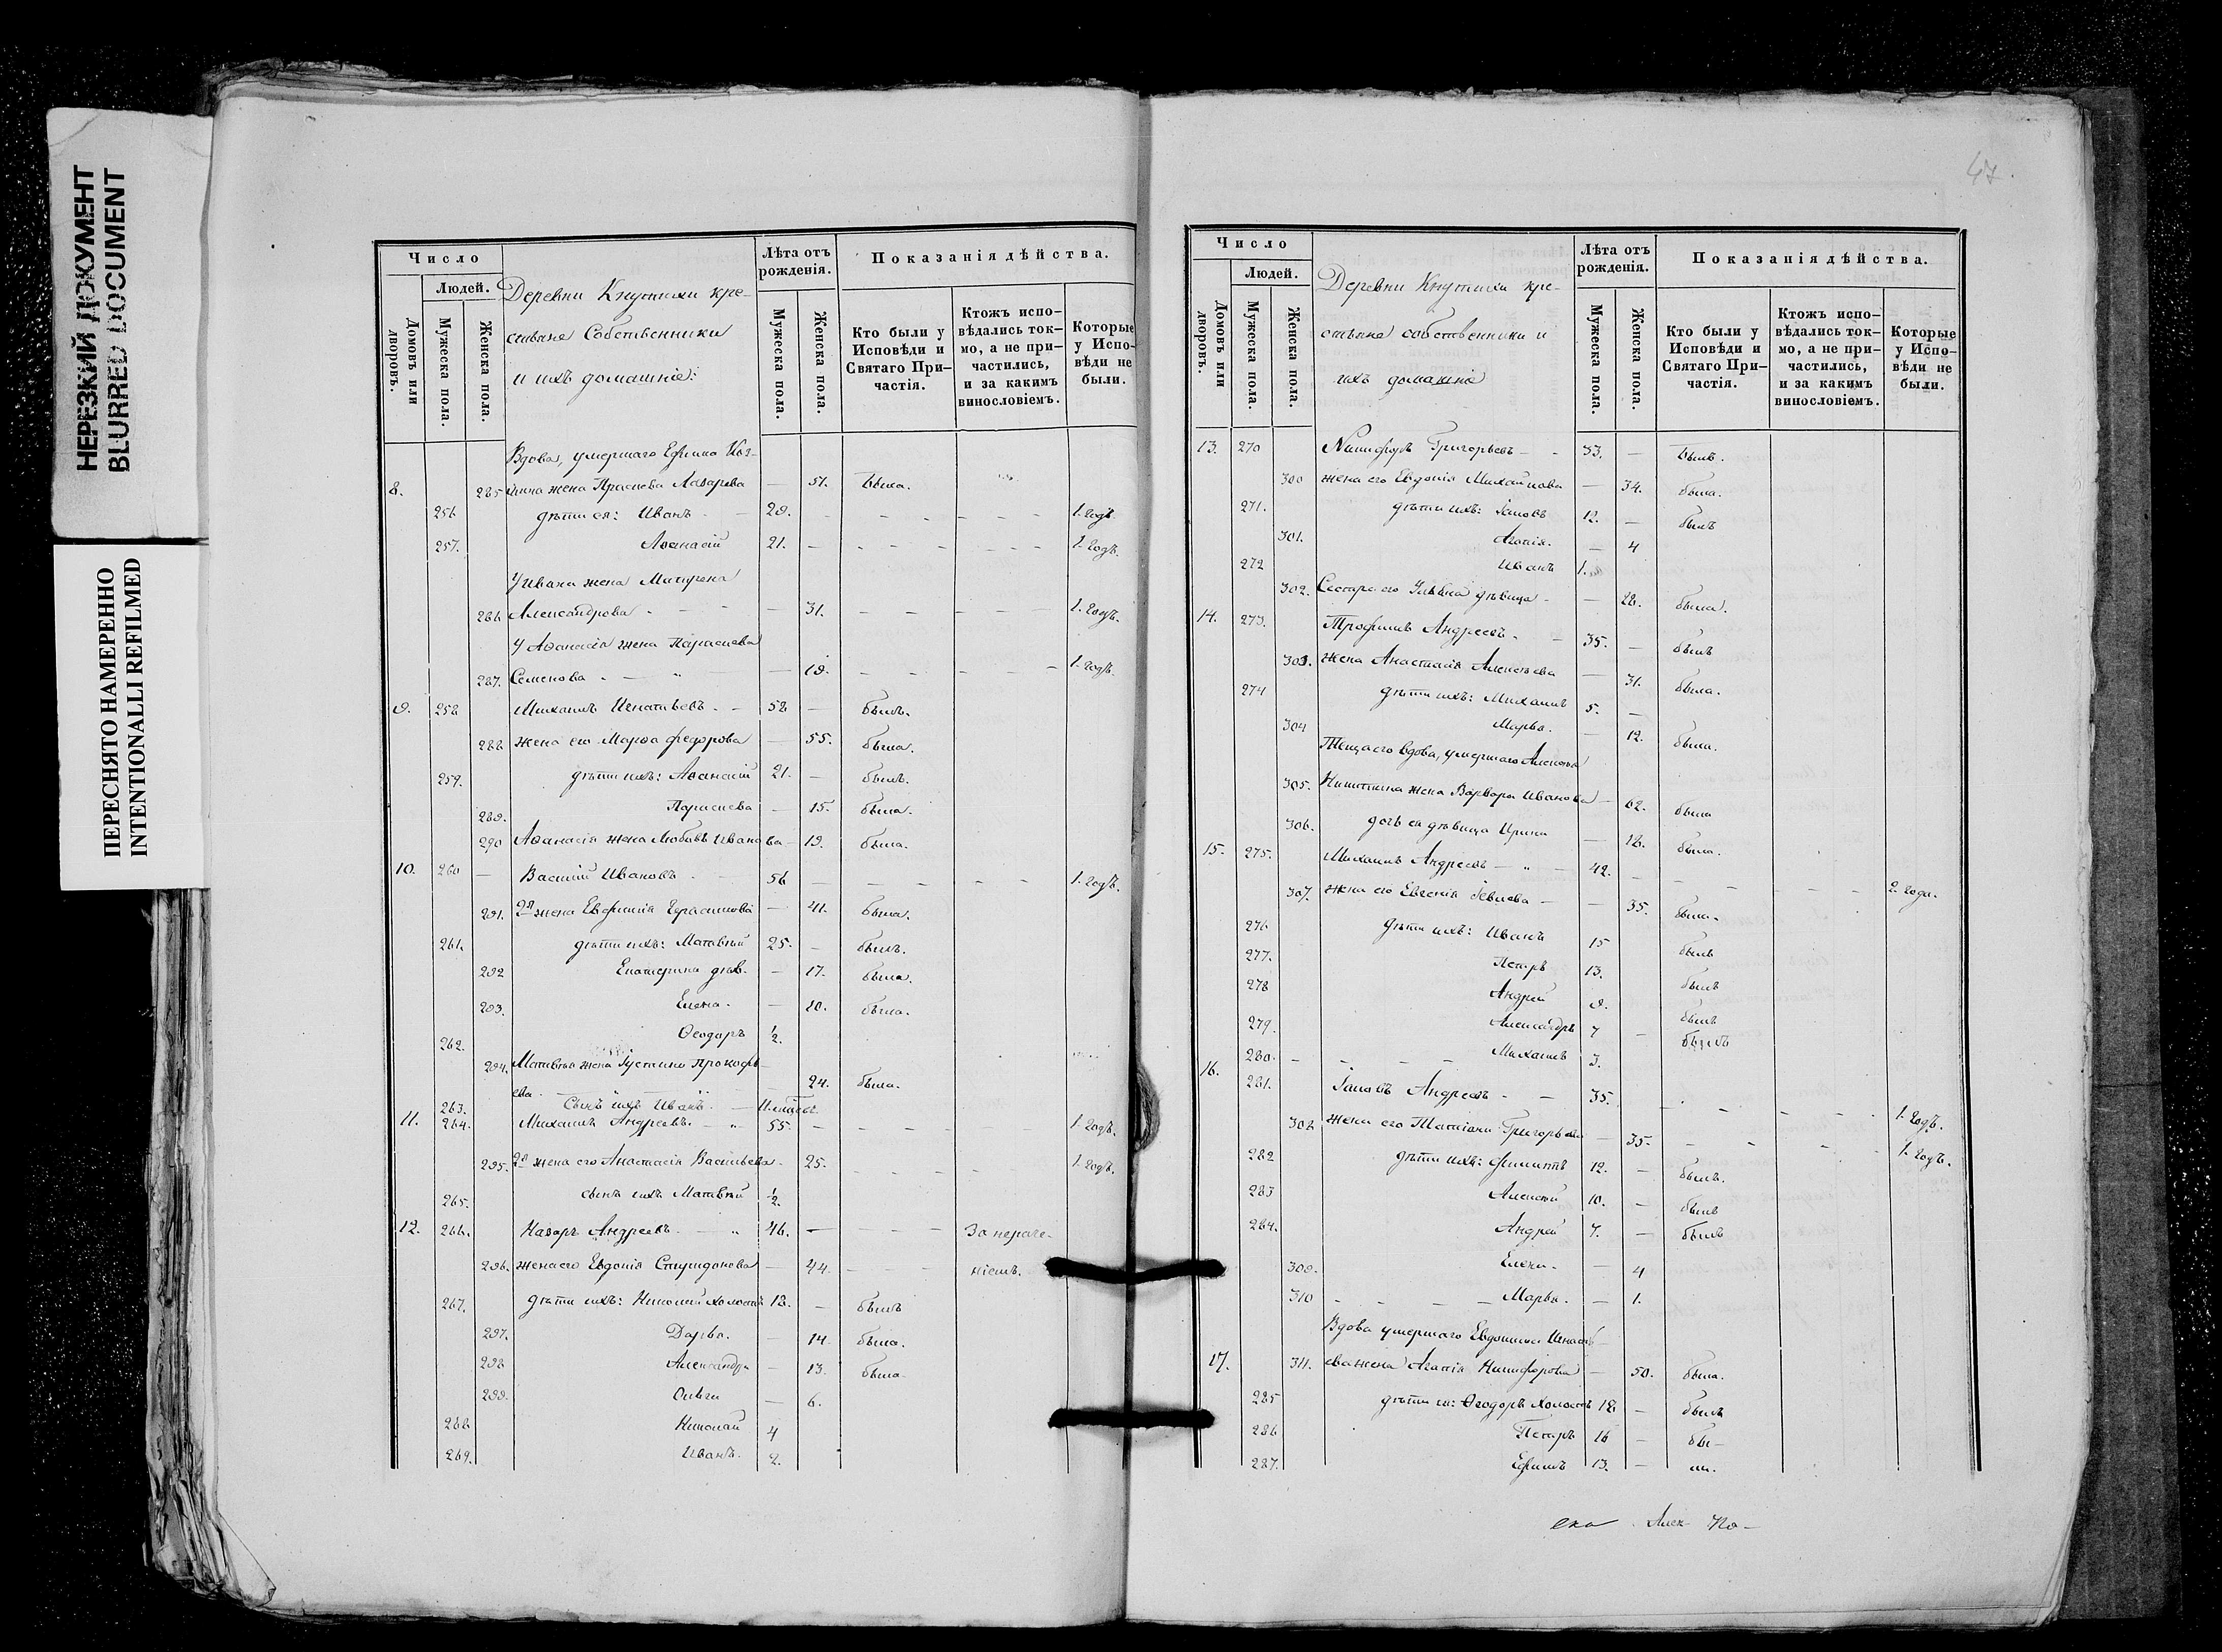 НЕРЕЗКИЙ ДОКУМЕНТ
BLURRED DOCUMENT
ПЕРЕСНЯТО НАМЕРЕННО
INTENTIONALLI REFILMED
Число
Людей.
Домовъ или дворовъ.
Мужеска пола.
Женска пола.
Деревни Кнутихи кре-
стьяне Собственники
и ихъ домашніе:
Лѣта отъ рожденія.
Мужеска пола.
Женска пола.
Показанія дѣйства.
Кто были у Исповѣди и Святаго При-частія.
Ктожъ испо-вѣдались ток-мо, а не при-частились, и за какимъ винословіемъ.
Которые у Испо-вѣди не были.
Вдова, умершаго Ефима Коз-
8. 285 мина жена Праскева Лазарева — 51. Была.
256 дѣти ея: Иванъ 29. 1. годъ.
257. Аѳанасій 21. — 1. годъ.
У Ивана жена Матрена
286 Александрова — 31. 1. годъ.
У Аѳанасія жена Параскева
287. Семенова — 19. 1. годъ.
9. 258 Михаилъ Игнатьевъ. 58 — былъ.
288 жена его Марѳа Федорова — 55. была.
259. дѣти ихъ: Аѳанасій 21. — былъ.
289. Параскева — 15. была.
290 Аѳанасія жена Любовь Иванова — 19. была.
10. 260 — Василій Ивановъ 56 — 1. годъ.
291. 2я жена Евфимія Герасимова — 41. была.
261. дѣти ихъ: Матвѣй 25. — былъ.
292 Екатерина дѣв. — 17. была.
293. Елена. — 10. была.
262. Ѳеодоръ ½.
294. Матвѣя жена Іустина Прокофь-
ева. 24. была.
263. Сынъ ихъ Иванъ.
11. 264. Михаилъ Андреевъ. 55. — 1. годъ.
295. 2я жена его Анастасія Васильева. 25. 1. годъ.
265. сынъ ихъ Матвѣй ½
12. 266. Назаръ Андреевъ 46. — За нераче-
296. жена его Евдокія Спиридонова — 44. ніемъ.
267. дѣти ихъ: Николай холостъ 18. — былъ
297. Дарья. — 14. была.
298 Александра — 13. была.
299. Ольга — 6.
268 Николай 4
269. Иванъ. 2.
47
Число
Людей.
Домовъ или дворовъ.
Мужеска пола.
Женска пола.
Деревни Кнутихи кре-
стьяне собственники и
ихъ домашніе
Лѣта отъ рожденія.
Мужеска пола.
Женска пола.
Показанія дѣйства.
Кто были у Исповѣди и Святаго При-частія.
Ктожъ испо-вѣдались ток-мо, а не при-частились, и за какимъ винословіемъ.
Которые у Испо-вѣди не были.
13. 270 Никифоръ Григорьевъ 33. — Былъ.
300 жена его Евдокія Михайлова — 34. была.
271. дѣти ихъ: Іаковъ 12. — былъ
301. Агапія. — 4
272 Иванъ 1.
302. Сестра его Ульяна дѣвица — 28. была.
14. 273. Трофимъ Андреевъ. 35. — былъ
303. жена Анастасія Алексѣева — 31. была.
274 дѣти ихъ: Михаилъ 5. —
304 Марья. — 12. была.
Теща его вдова, умершаго Алексѣя
305. Никитина жена Варвара Иванова — 62. была
306. дочь ея дѣвица Ирина — 18. была.
15. 275. Михаилъ Андреевъ 42. — 2. года.
307. жена его Евгенія Іевлева — 35. была.
276 дѣти ихъ: Иванъ 15 былъ
277. Петръ 13. былъ
278 Андрей 9. былъ
279. Александръ 7 — былъ
280. Михаилъ 3.
16. 281. Іаковъ Андреевъ 35. 1. годъ.
308 жена его Татіана Григорьева — 35. 1. годъ.
282 дѣти ихъ: Филиппъ 12. — былъ.
283 Алексѣй 10. — былъ
284. Андрей 7. — былъ
309. Елена. — 4
310 Марья. — 1.
Вдова умершаго Евдокима Игнать-
17. 311. ева жена Агапія Никифорова — 50. была.
285 дѣти ея: Ѳеодоръ холостъ 18. — былъ
286 Петръ 16 — бы-
287. Ефимъ 13. — ли.